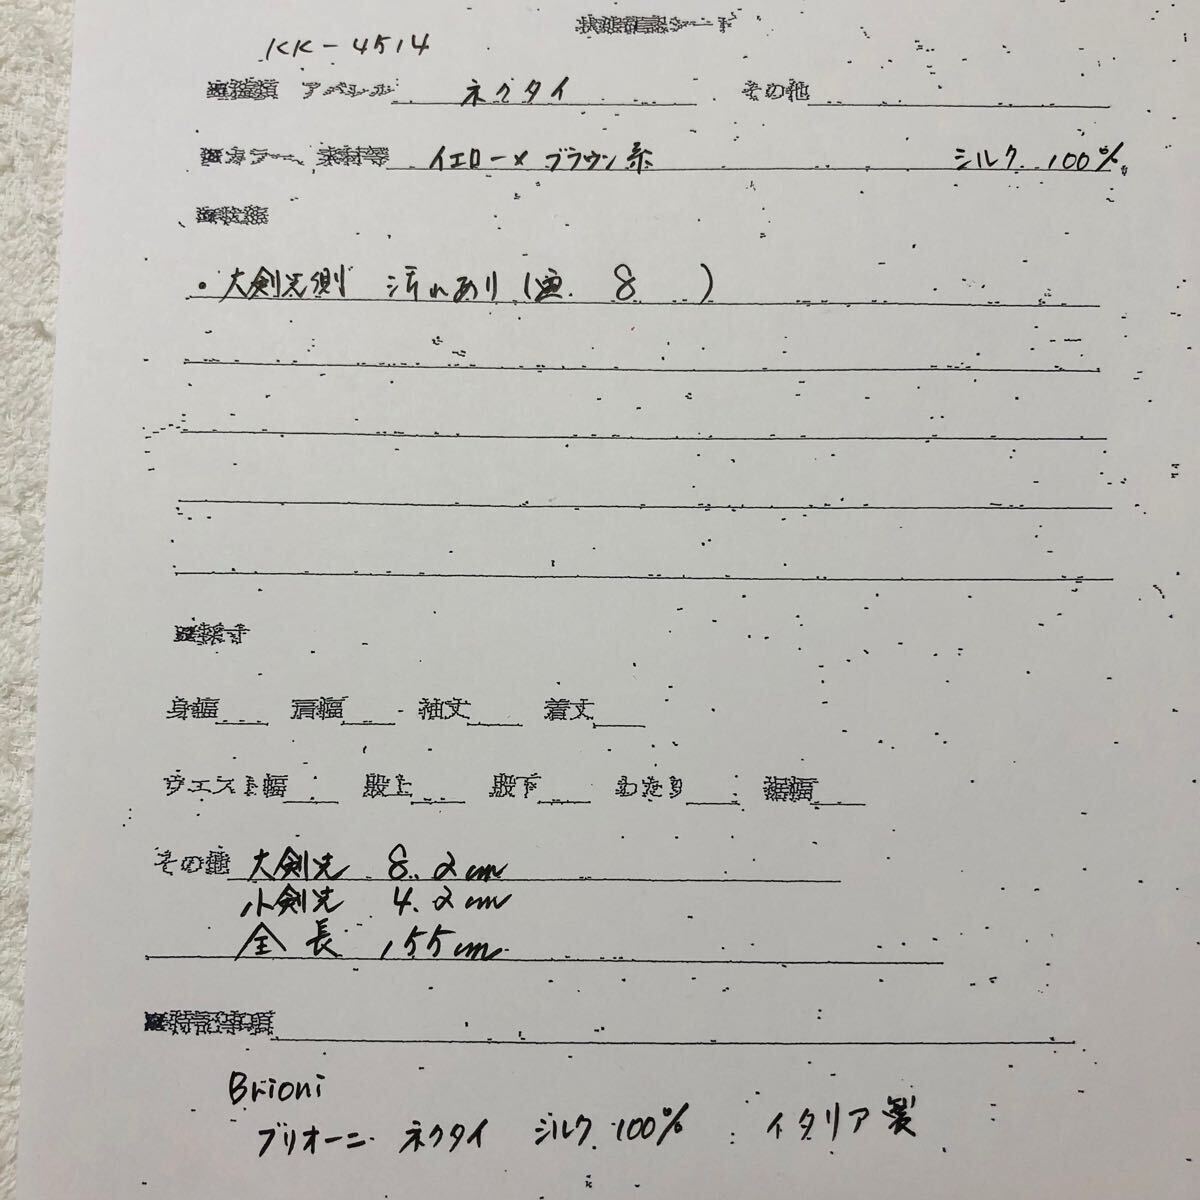 状態確認シート
KK-4514
■種類 アパレル ネクタイ その他
■カラー、素材等 イエロー×ブラウン系 シルク 100%
■状態
・大剣先側 汚れあり( 8 )
■採寸
身幅 肩幅 袖丈 着丈
ウエスト幅 股上 股下 わたり 裾幅
その他 大剣先 8.2cm
小剣先 4.2cm
全長 155cm
■特記事項
Brioni
ブリオーニ ネクタイ シルク 100% イタリア製